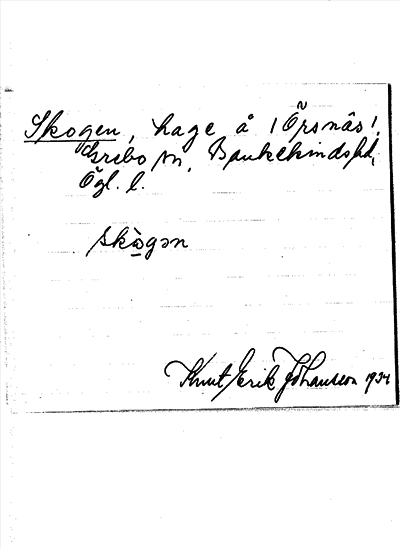 Skogen, hage å 1 Örsnäs 1,
Grebo sn, Bankekinds hd,
Ögl. l.
skògən
Knut Erik Johansson 1934